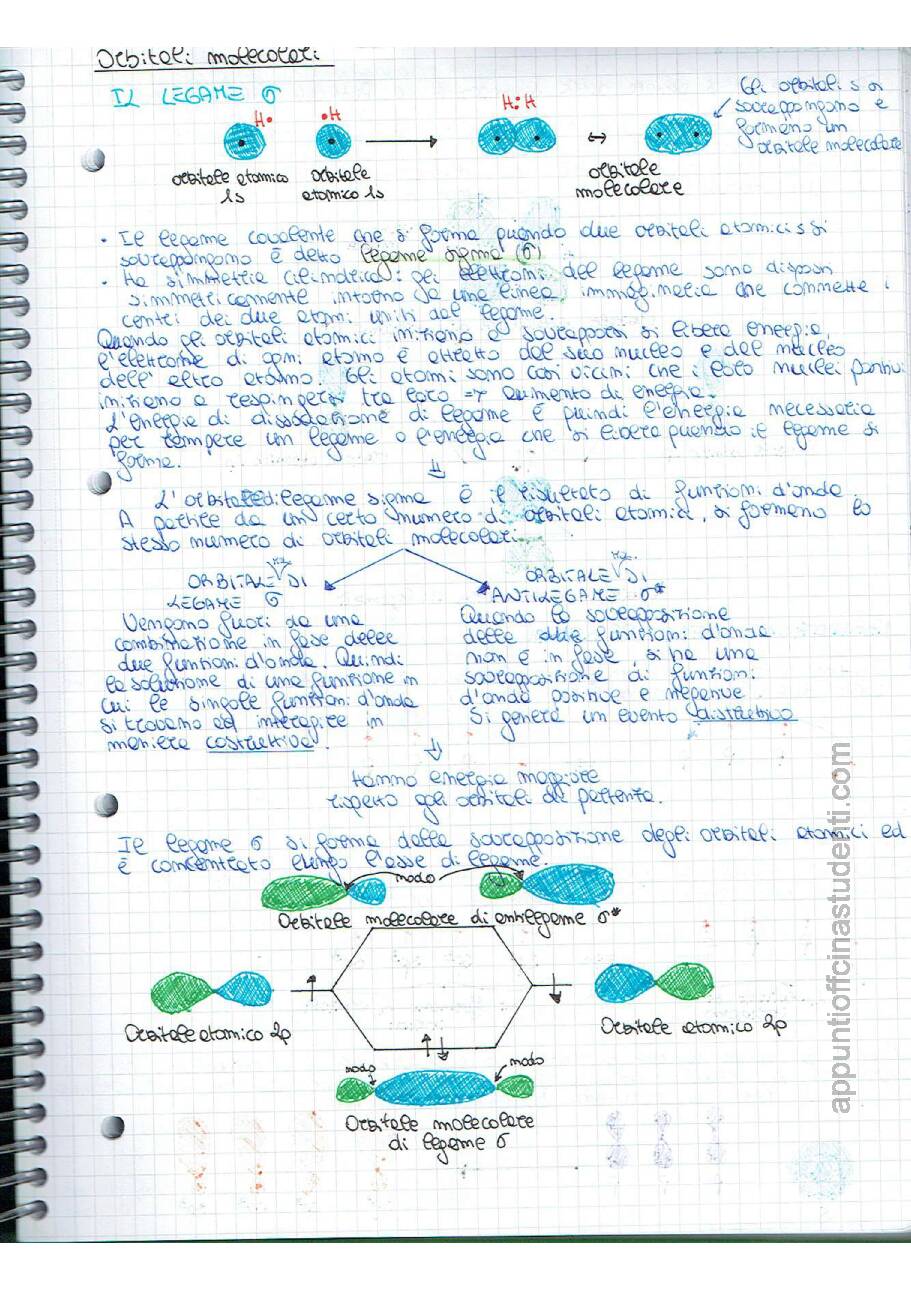 Orbitali molecolari
IL LEGAME σ
H•
•H
H:H
Gli orbitali s si
sovrappongono e
formano un
orbitale molecolare
orbitale atomico
1s
orbitale
atomico 1s
orbitale
molecolare
• Il legame covalente che si forma quando due orbitali atomici s si
sovrappongono è detto legame sigma (σ)
• Ha simmetria cilindrica: gli elettroni del legame sono disposti
simmetricamente intorno a una linea immaginaria che connette i
centri dei due atomi uniti dal legame.
Quando gli orbitali atomici iniziano a sovrapporsi si libera energia,
l'elettrone di ogni atomo è attratto dal suo nucleo e dal nucleo
dell'altro atomo. Gli atomi sono così vicini che i loro nuclei positivi
iniziano a respingersi tra loro => aumento di energia.
L'energia di dissociazione di legame è quindi l'energia necessaria
per rompere un legame o l'energia che si libera quando il legame si
forma.
⇓
L'orbitale di legame sigma è il risultato di funzioni d'onda.
A partire da un certo numero di orbitali atomici, si formano lo
stesso numero di orbitali molecolari.
ORBITALE MOL. DI
LEGAME σ
Vengono fuori da una
combinazione in fase delle
due funzioni d'onda. Quindi
la soluzione di una funzione in
cui le singole funzioni d'onda
si trovano ad interagire in
maniera costruttiva.
ORBITALE MOL. DI
ANTILEGAME σ*
Quando la sovrapposizione
delle due funzioni d'onda
non è in fase, si ha una
sovrapposizione di funzioni
d'onda positive e negative.
Si genera un evento distruttivo
⇓
Hanno energia maggiore
rispetto agli orbitali di partenza.
Il legame σ si forma dalla sovrapposizione degli orbitali atomici ed
è concentrato lungo l'asse di legame.
nodo
Orbitale molecolare di antilegame σ*
Orbitale atomico 2p
Orbitale atomico 2p
nodo
nodo
Orbitale molecolare
di legame σ
appuntioffcinastudenti.com